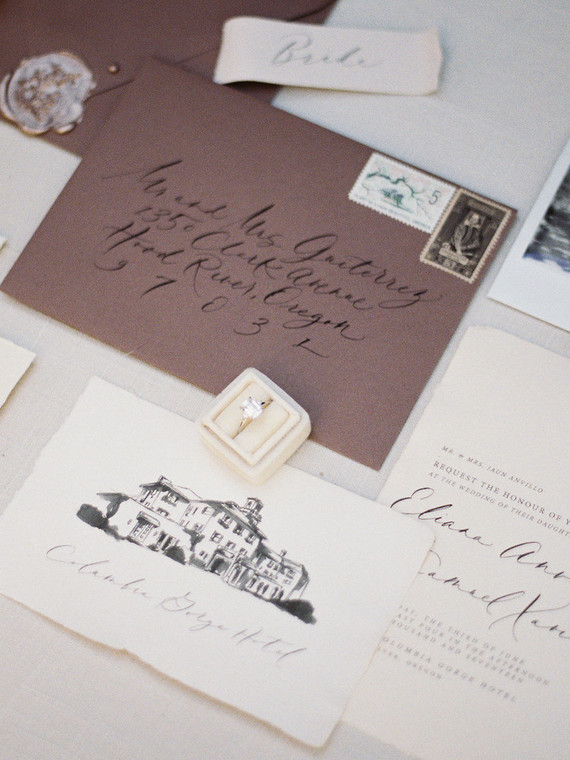 Bride
5
Mr and Mrs Guiterrez
1350 Clark Avenue
Hood River, Oregon
9 7 0 3 1
MR. & MRS. JAUN ANVILLO
REQUEST THE HONOUR OF Y
AT THE WEDDING OF THEIR DAUGHT
Eliana Ann
Samuel Xan
DAY, THE THIRD OF JUNE
AST FOUR IN THE AFTERNOON
HOUSAND AND SEVENTEEN
OLUMBIA GORGE HOTEL
OREGON
Columbia Gorge Hotel